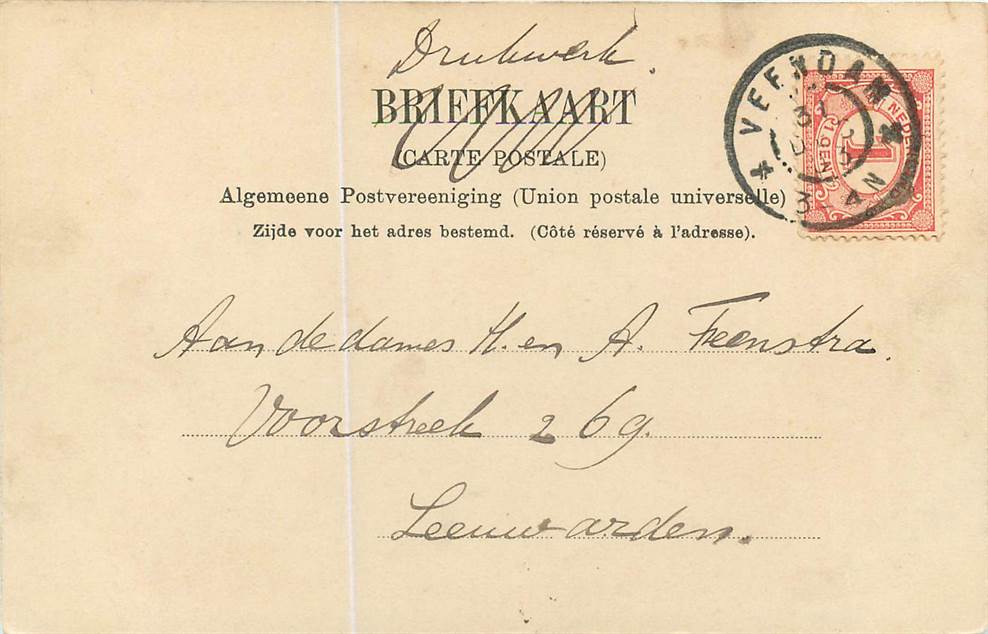 Drukwerk.
BRIEFKAART
(CARTE POSTALE)
Algemeene Postvereeniging (Union postale universelle)
Zijde voor het adres bestemd. (Côté réservé à l'adresse).
VEENDAM
NEDER
1 CENT
1
Aan de dames H. en A. Feenstra.
Voorstreek 269.
Leeuwarden.